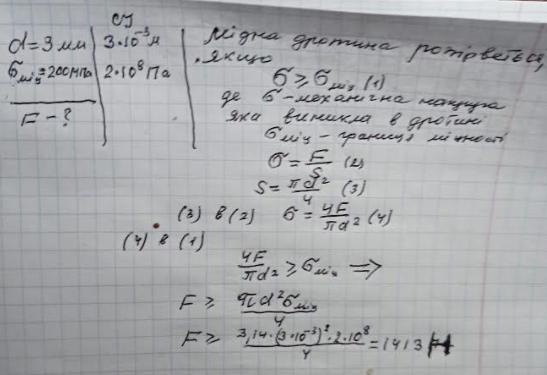 СІ
d = 3 мм | 3·10⁻³ м
σміц = 200 МПа | 2·10⁸ Па
F - ?
Мідна дротина розірветься,
якщо
σ ≥ σміц (1)
де σ - механічна напруга
яка виникла в дротині
σміц - границя міцності
σ = F/S (2)
S = πd²/4 (3)
(3) в (2) σ = 4F/πd² (4)
(4) в (1)
4F/πd² ≥ σміц ⇒
F ≥ πd²σміц/4
F ≥ 3,14·(3·10⁻³)²·2·10⁸/4 = 1413 Н